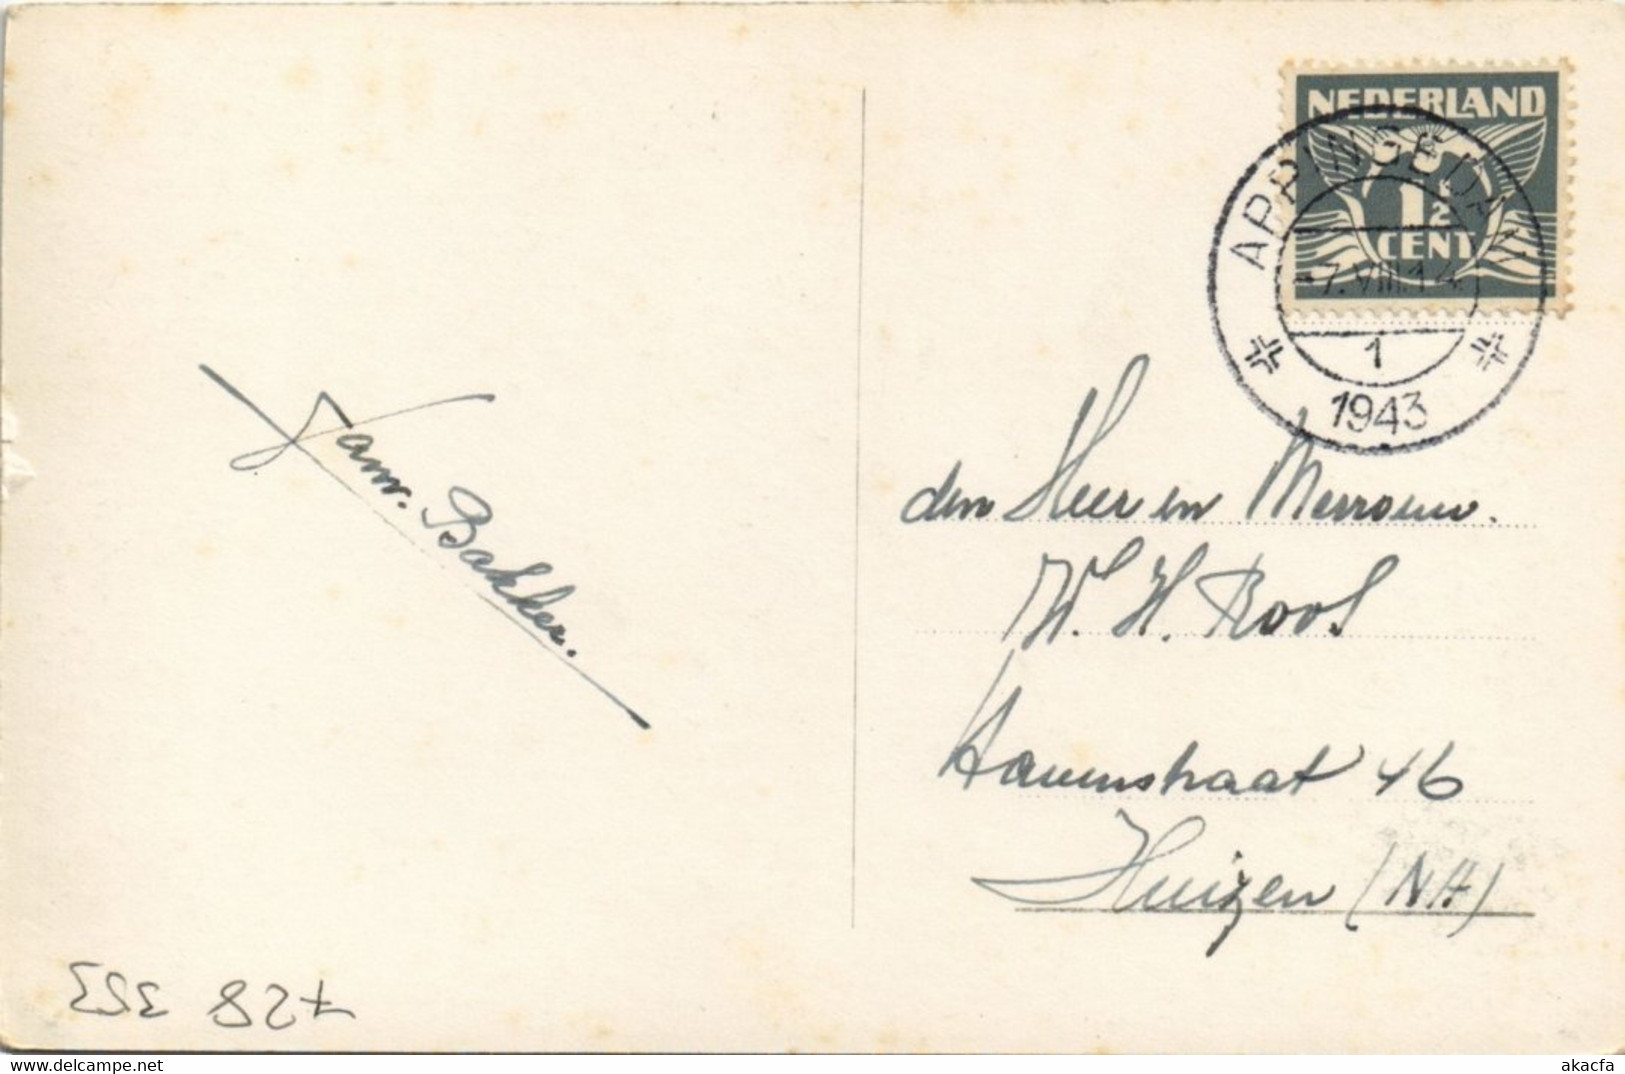 NEDERLAND
1½
CENT
APPINGEDAM
-7.VIII.14
1
1943
Fam. Bakker.
den Heer en Mevrouw.
W. H. Roos
Havenstraat 46
Huizen (NH)
delcampe.net
akacfa